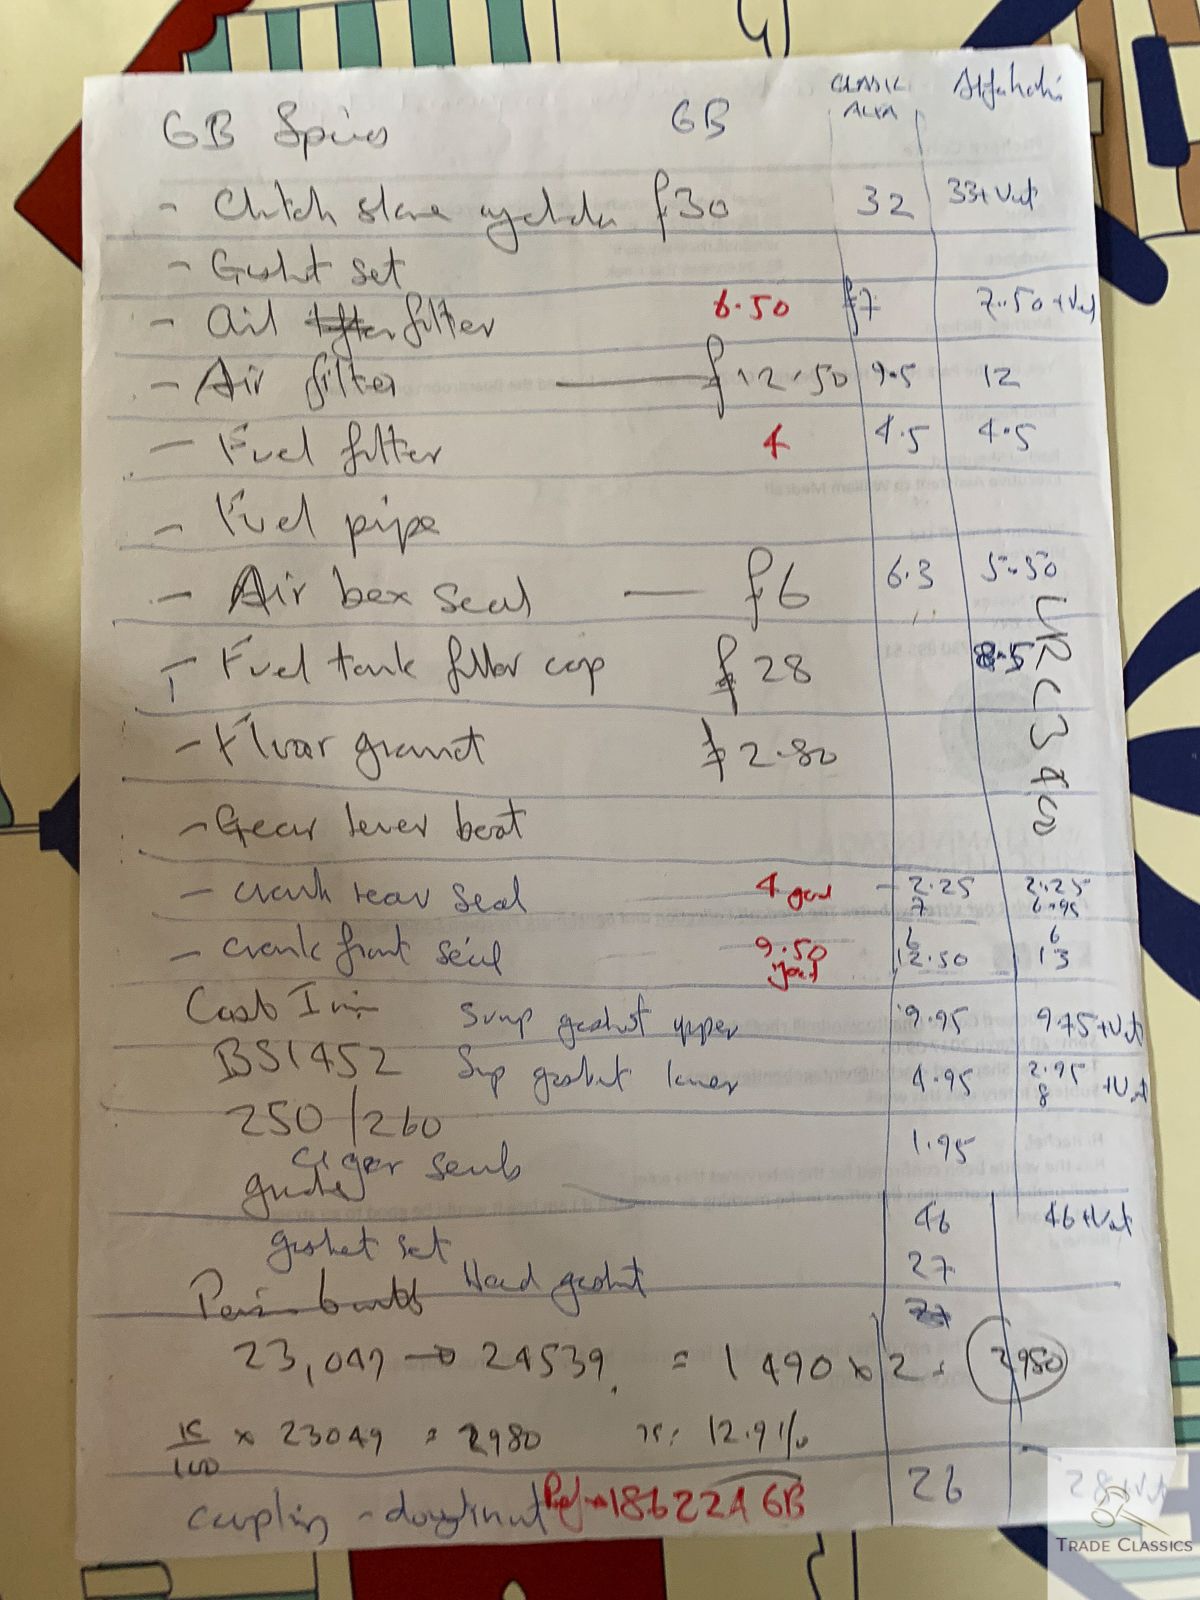 GB Spares GB CLASSIC ALFA Alfaholics
- Clutch slave cylinder £30 32 33+Vat
- Gasket set
- Oil filter 6.50 £7 7.50+Vat
- Air filter — £12.50 9.5 12
- Fuel filter 4 4.5 4.5
- Fuel pipe
- Air box seal — £6 6.3 5.50
- Fuel tank filler cap £28 8.5
URC3948
- Floor gromit £2.80
- Gear lever boot
- crank rear seal 4 2.25 2.25
7 6.95
- crank front seal 9.50 6 6
12.50 13
Cast Iron Sump gasket upper 9.95 9.75+Vat
BS1452 Sump gasket lower 4.95 2.95 +Vat
8
250/260
cigar seals 1.95
grade
gasket set 46 46+Vat
Head gasket 27
23,049 → 24539 = 1490 x 2 = 2980
x/100 x 23049 = 2980 x = 12.9%
coupling - doughnut 186224 GB 26 28+Vat
TRADE CLASSICS